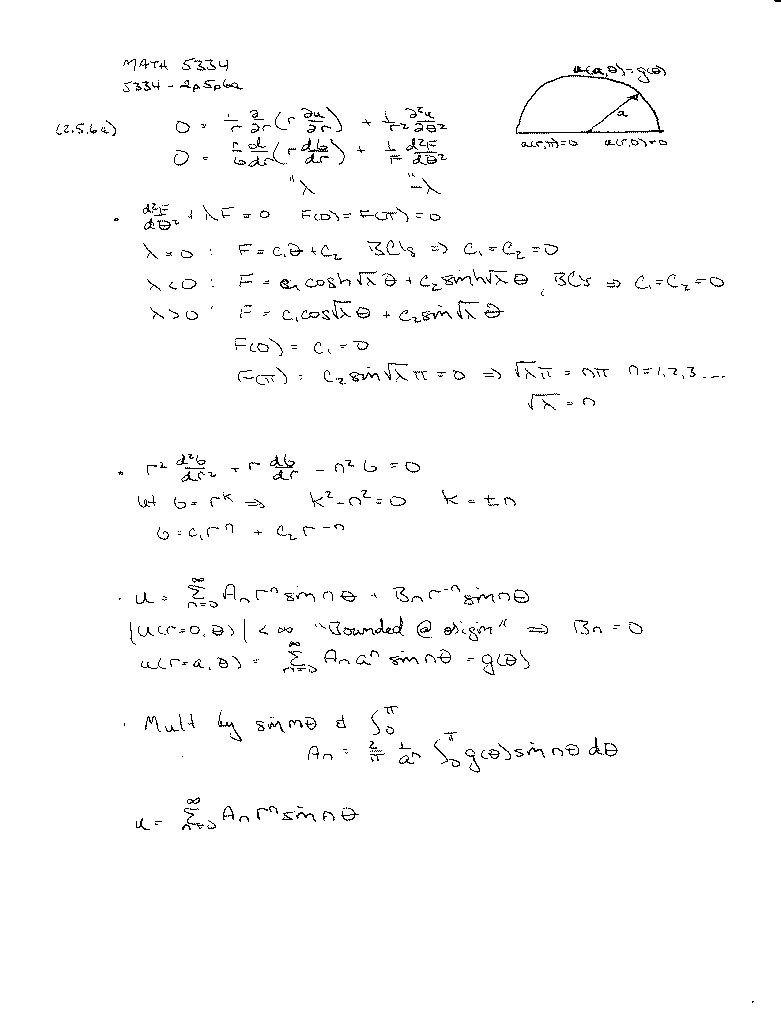 MATH 5334
5334 - 2p5p6a
u(a,θ)=g(θ)
a
u(r,π)=0 u(r,0)=0
(2.5.6a) 0 = 1/r ∂/∂r (r ∂u/∂r) + 1/r² ∂²u/∂θ²
0 = r/G d/dr (r dG/dr) + 1/F d²F/dθ²
"λ "-λ
• d²F/dθ² + λF = 0 F(0) = F(π) = 0
λ = 0 : F = c₁θ + c₂ BC's ⇒ c₁ = c₂ = 0
λ < 0 : F = c₁ cosh √λ θ + c₂ sinh √λ θ, BC's ⇒ c₁ = c₂ = 0
λ > 0 : F = c₁ cos √λ θ + c₂ sin √λ θ
F(0) = c₁ = 0
F(π) = c₂ sin √λ π = 0 ⇒ √λ π = nπ n = 1,2,3 ...
√λ = n
• r² d²G/dr² + r dG/dr - n² G = 0
let G = r^k ⇒ k² - n² = 0 k = ± n
G = c₁ r^n + c₂ r^-n
• u = ∑_{n=0}^∞ An r^n sin nθ + Bn r^-n sin nθ
|u(r=0,θ)| < ∞ "Bounded @ origin" ⇒ Bn = 0
u(r=a,θ) = ∑_{n=0}^∞ An a^n sin nθ = g(θ)
• Mult by sin mθ & ∫₀^π
An = 2/π 1/a^n ∫₀^π g(θ) sin nθ dθ
u = ∑_{n=0}^∞ An r^n sin nθ